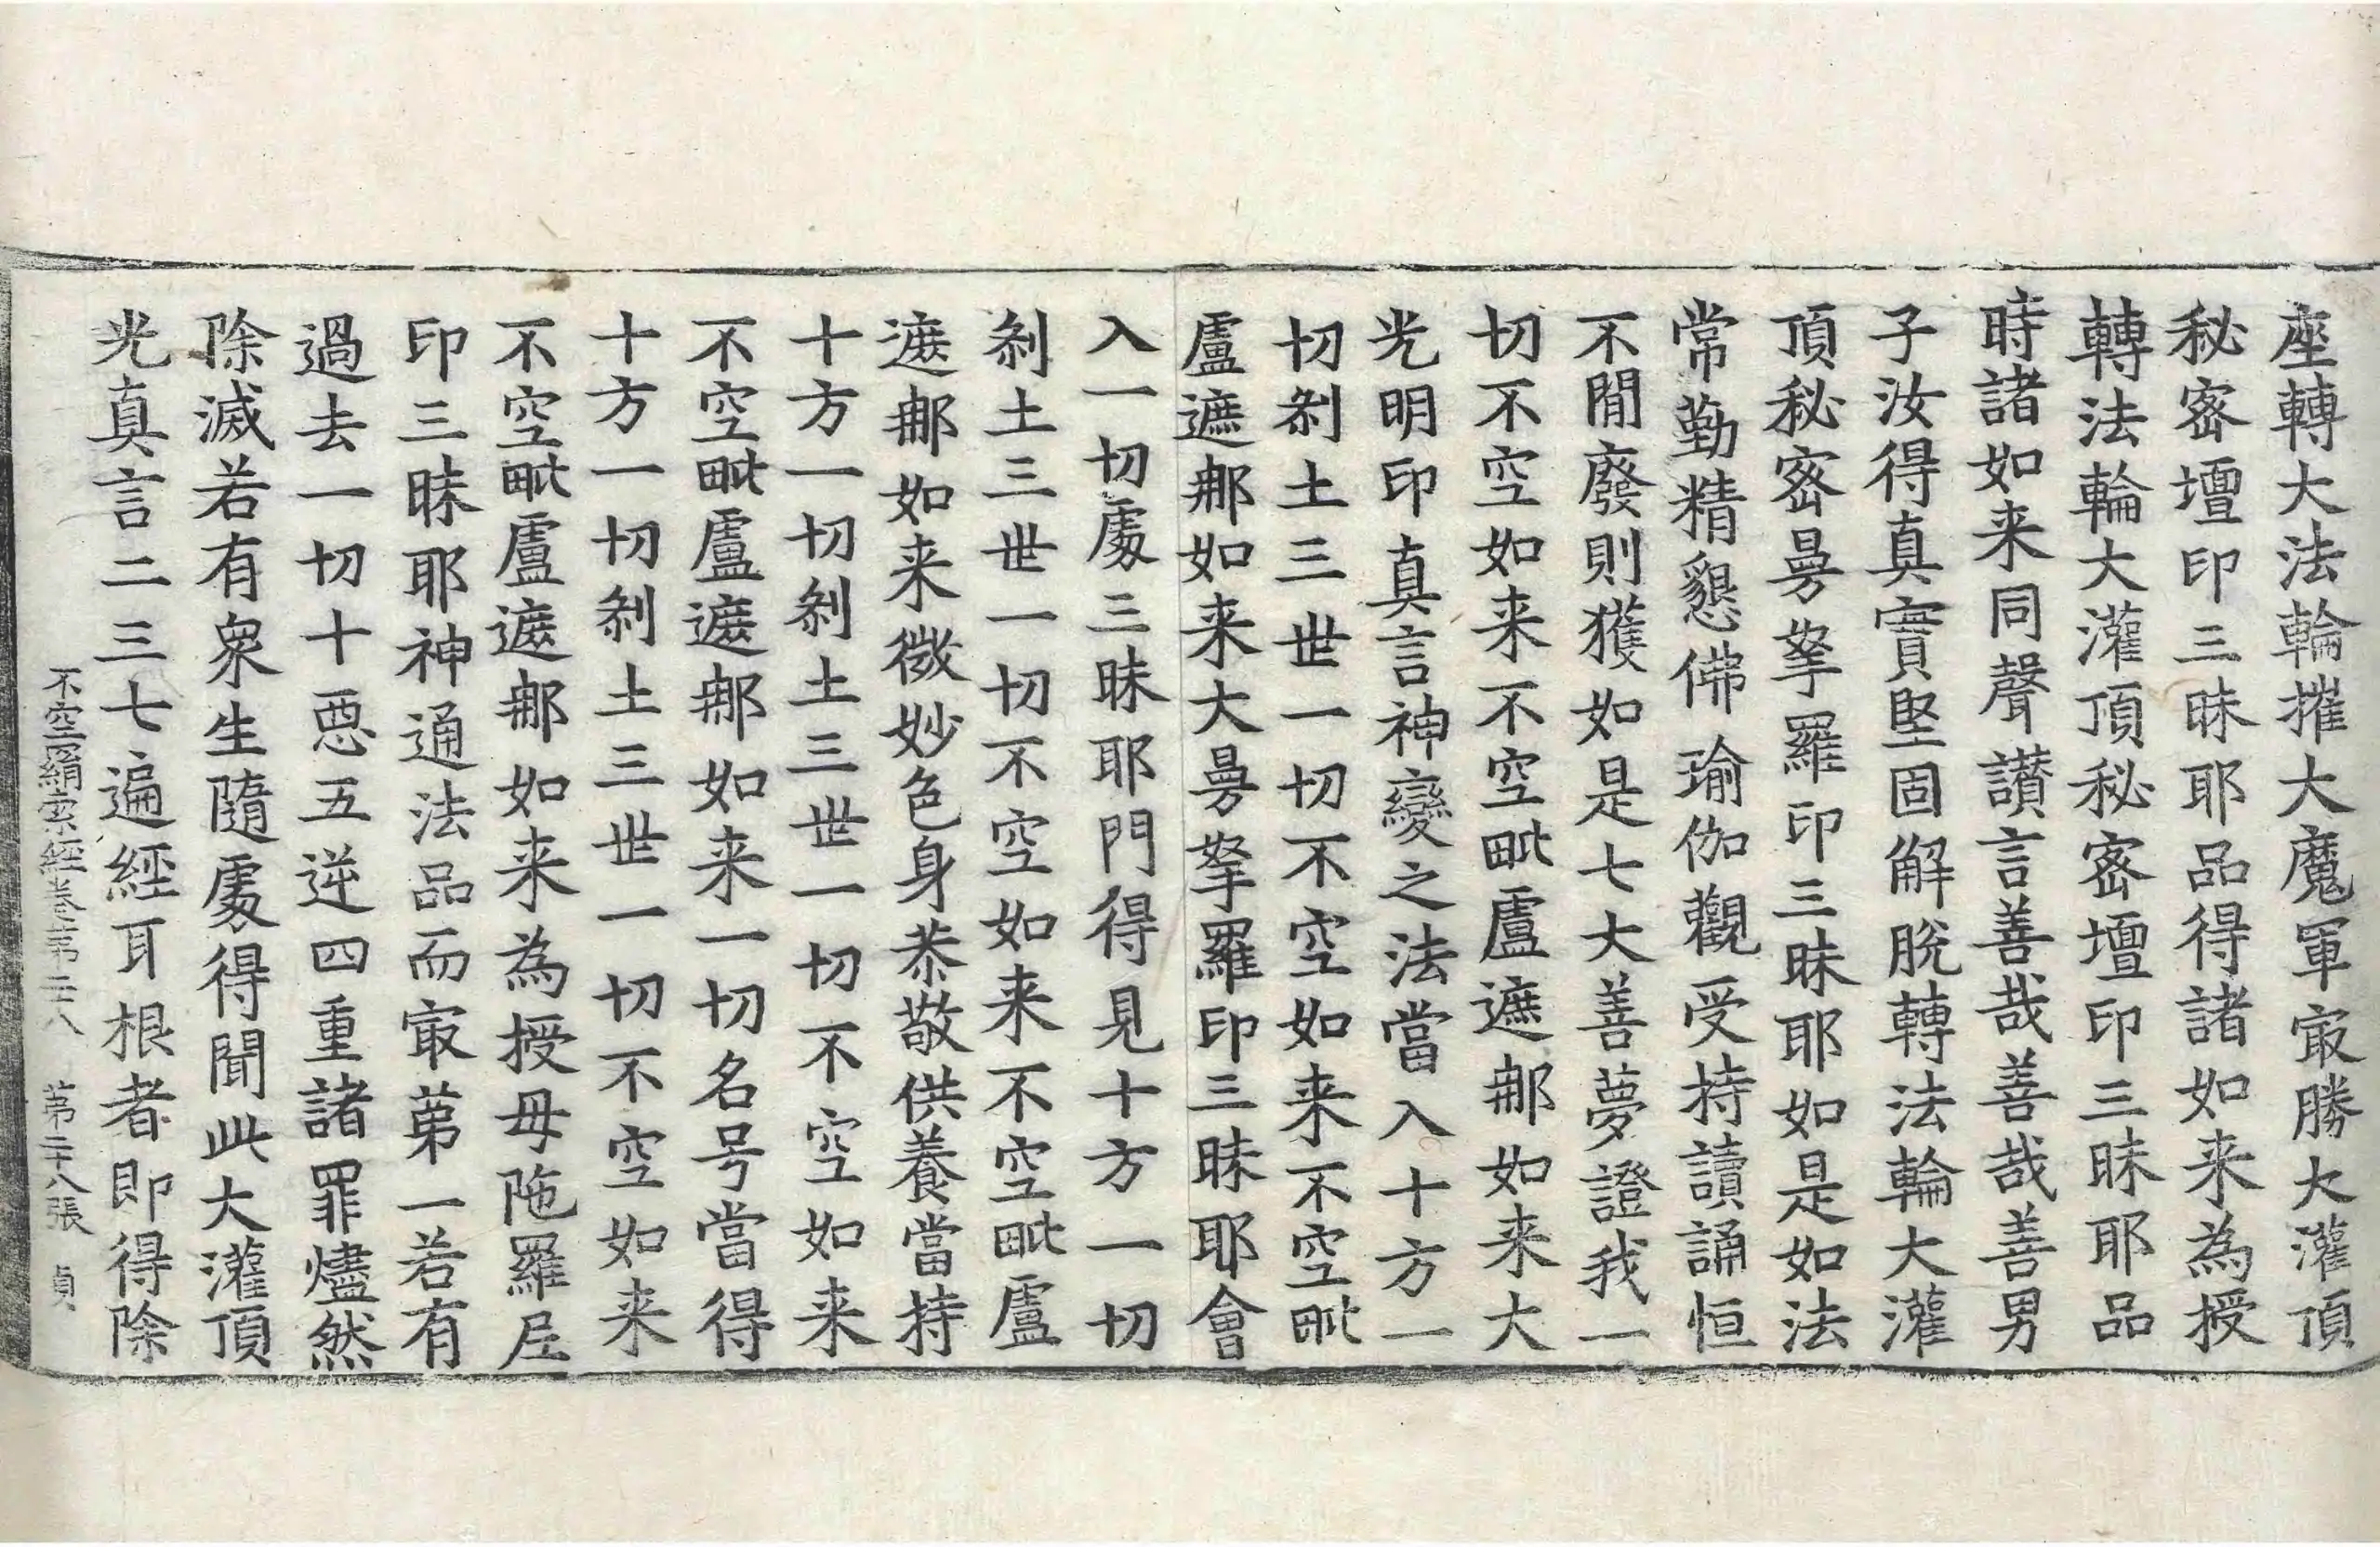 座轉大法輪摧大魔軍㝡勝大灌頂
秘密壇印三昧耶品得諸如来為授
轉法輪大灌頂秘密壇印三昧耶品
時諸如来同聲讃言善哉善哉善男
子汝得真實堅固解脫轉法輪大灌
頂秘密曼拏羅印三昧耶如是如法
常勤精懇佛瑜伽觀受持讀誦恒
不閒廢則獲如是七大善夢證我一
切不空如来不空毗盧遮那如来大
光明印真言神變之法當入十方一
切剎土三世一切不空如来不空毗
盧遮那如来大曼拏羅印三昧耶會
入一切處三昧耶門得見十方一切
剎土三世一切不空如来不空毗盧
遮那如来微妙色身恭敬供養當持
十方一切剎土三世一切不空如来
不空毗盧遮那如来一切名号當得
十方一切剎土三世一切不空如来
不空毗盧遮那如来為授母陁羅尼
印三昧耶神通法品而㝡苐一若有
過去一切十惡五逆四重諸罪燼然
除滅若有衆生隨處得聞此大灌頂
光真言二三七遍經耳根者即得除
不空羂索經卷苐二十八 苐二十八張 貞